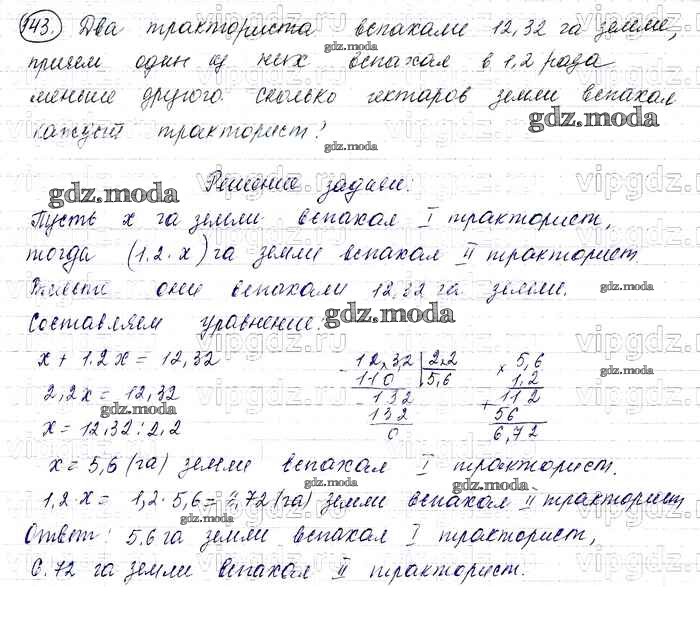 143. Два тракториста вспахали 12,32 га земли,
причем один из них вспахал в 1,2 раза
меньше другого. Сколько гектаров земли вспахал
каждый тракторист?
Решение задачи.
Пусть x га земли вспахал I тракторист,
тогда (1.2·x) га земли вспахал II тракторист.
Вместе они вспахали 12,32 га земли.
Составляем уравнение:
x + 1.2x = 12,32
2,2x = 12,32
x = 12,32 : 2,2
12,32 | 2,2
110 | 5,6
132
132
0
× 5,6
1,2
+ 112
56
6,72
x = 5,6 (га) земли вспахал I тракторист.
1,2·x = 1,2·5,6 = 6,72 (га) земли вспахал II тракторист
Ответ: 5,6 га земли вспахал I тракторист,
6.72 га земли вспахал II тракторист.
gdz.moda
vipgdz.ru